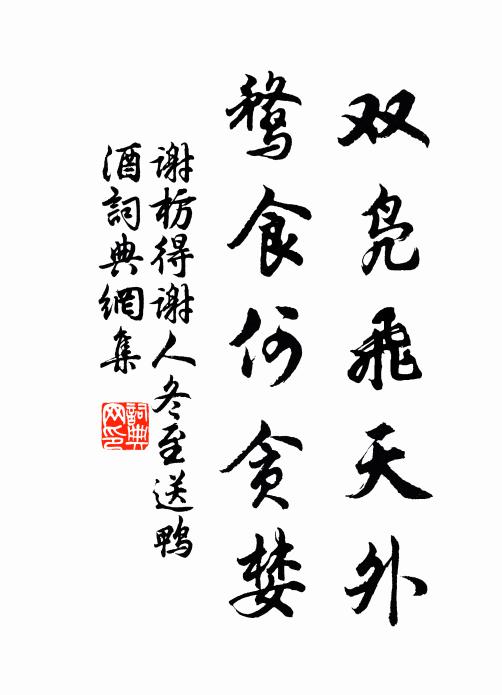 双凫飞天外
鹜食何贪婪
谢枋得谢人冬至送鸭
酒詞典網集
詞典
网印